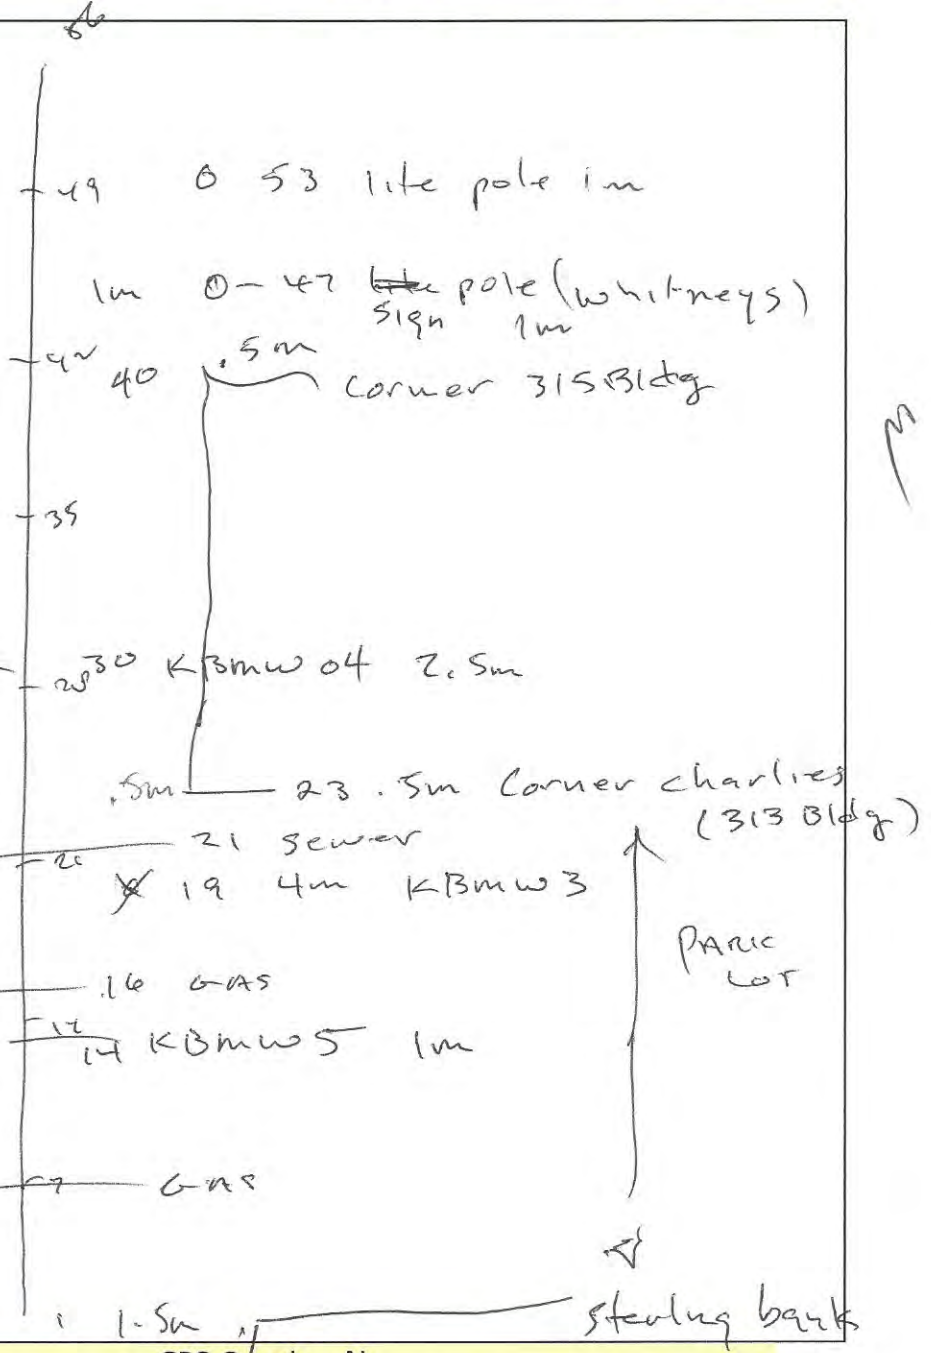 56
49 0 53 lite pole 1m
1m 0-47 lite pole (whitneys)
sign 1m
42 .5m
40 corner 315 Bldg
35
28 30 KBmw04 2.5m
.5m 23 .5m Corner charlies
(313 Bldg)
21 sewer
21
19 4m KBmw3
PARK
LOT
16 GAS
14
14 KBmw5 1m
7 GAS
1.5m sterling bank